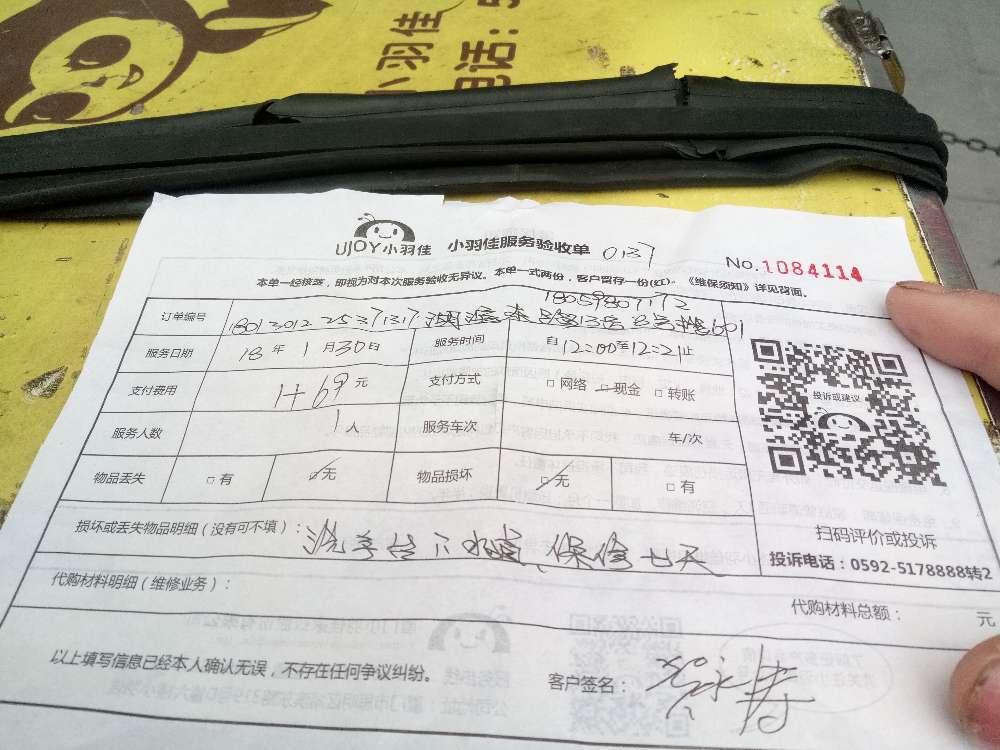 小羽佳
电话：5
UJOY小羽佳 小羽佳服务验收单 0137
No.1084114
本单一经核签，即视为对本次服务验收无异议。本单一式两份，客户留存一份(红)。《维保须知》详见背面。
18059807172
订单编号 1801301225371317 601
服务日期 18年1月30日 服务时间 自12:00至12:21止
支付费用 1+69元 支付方式 □网络 □现金 □转账
服务人数 1人 服务车次 车/次
物品丢失 □有 ☑无 物品损坏 □无 □有
投诉或建议
扫码评价或投诉
损坏或丢失物品明细（没有可不填）：洗手台下水管，保修七天
投诉电话：0592-5178888转2
代购材料明细（维修业务）：
代购材料总额： 元
以上填写信息已经本人确认无误，不存在任何争议纠纷。
客户签名：